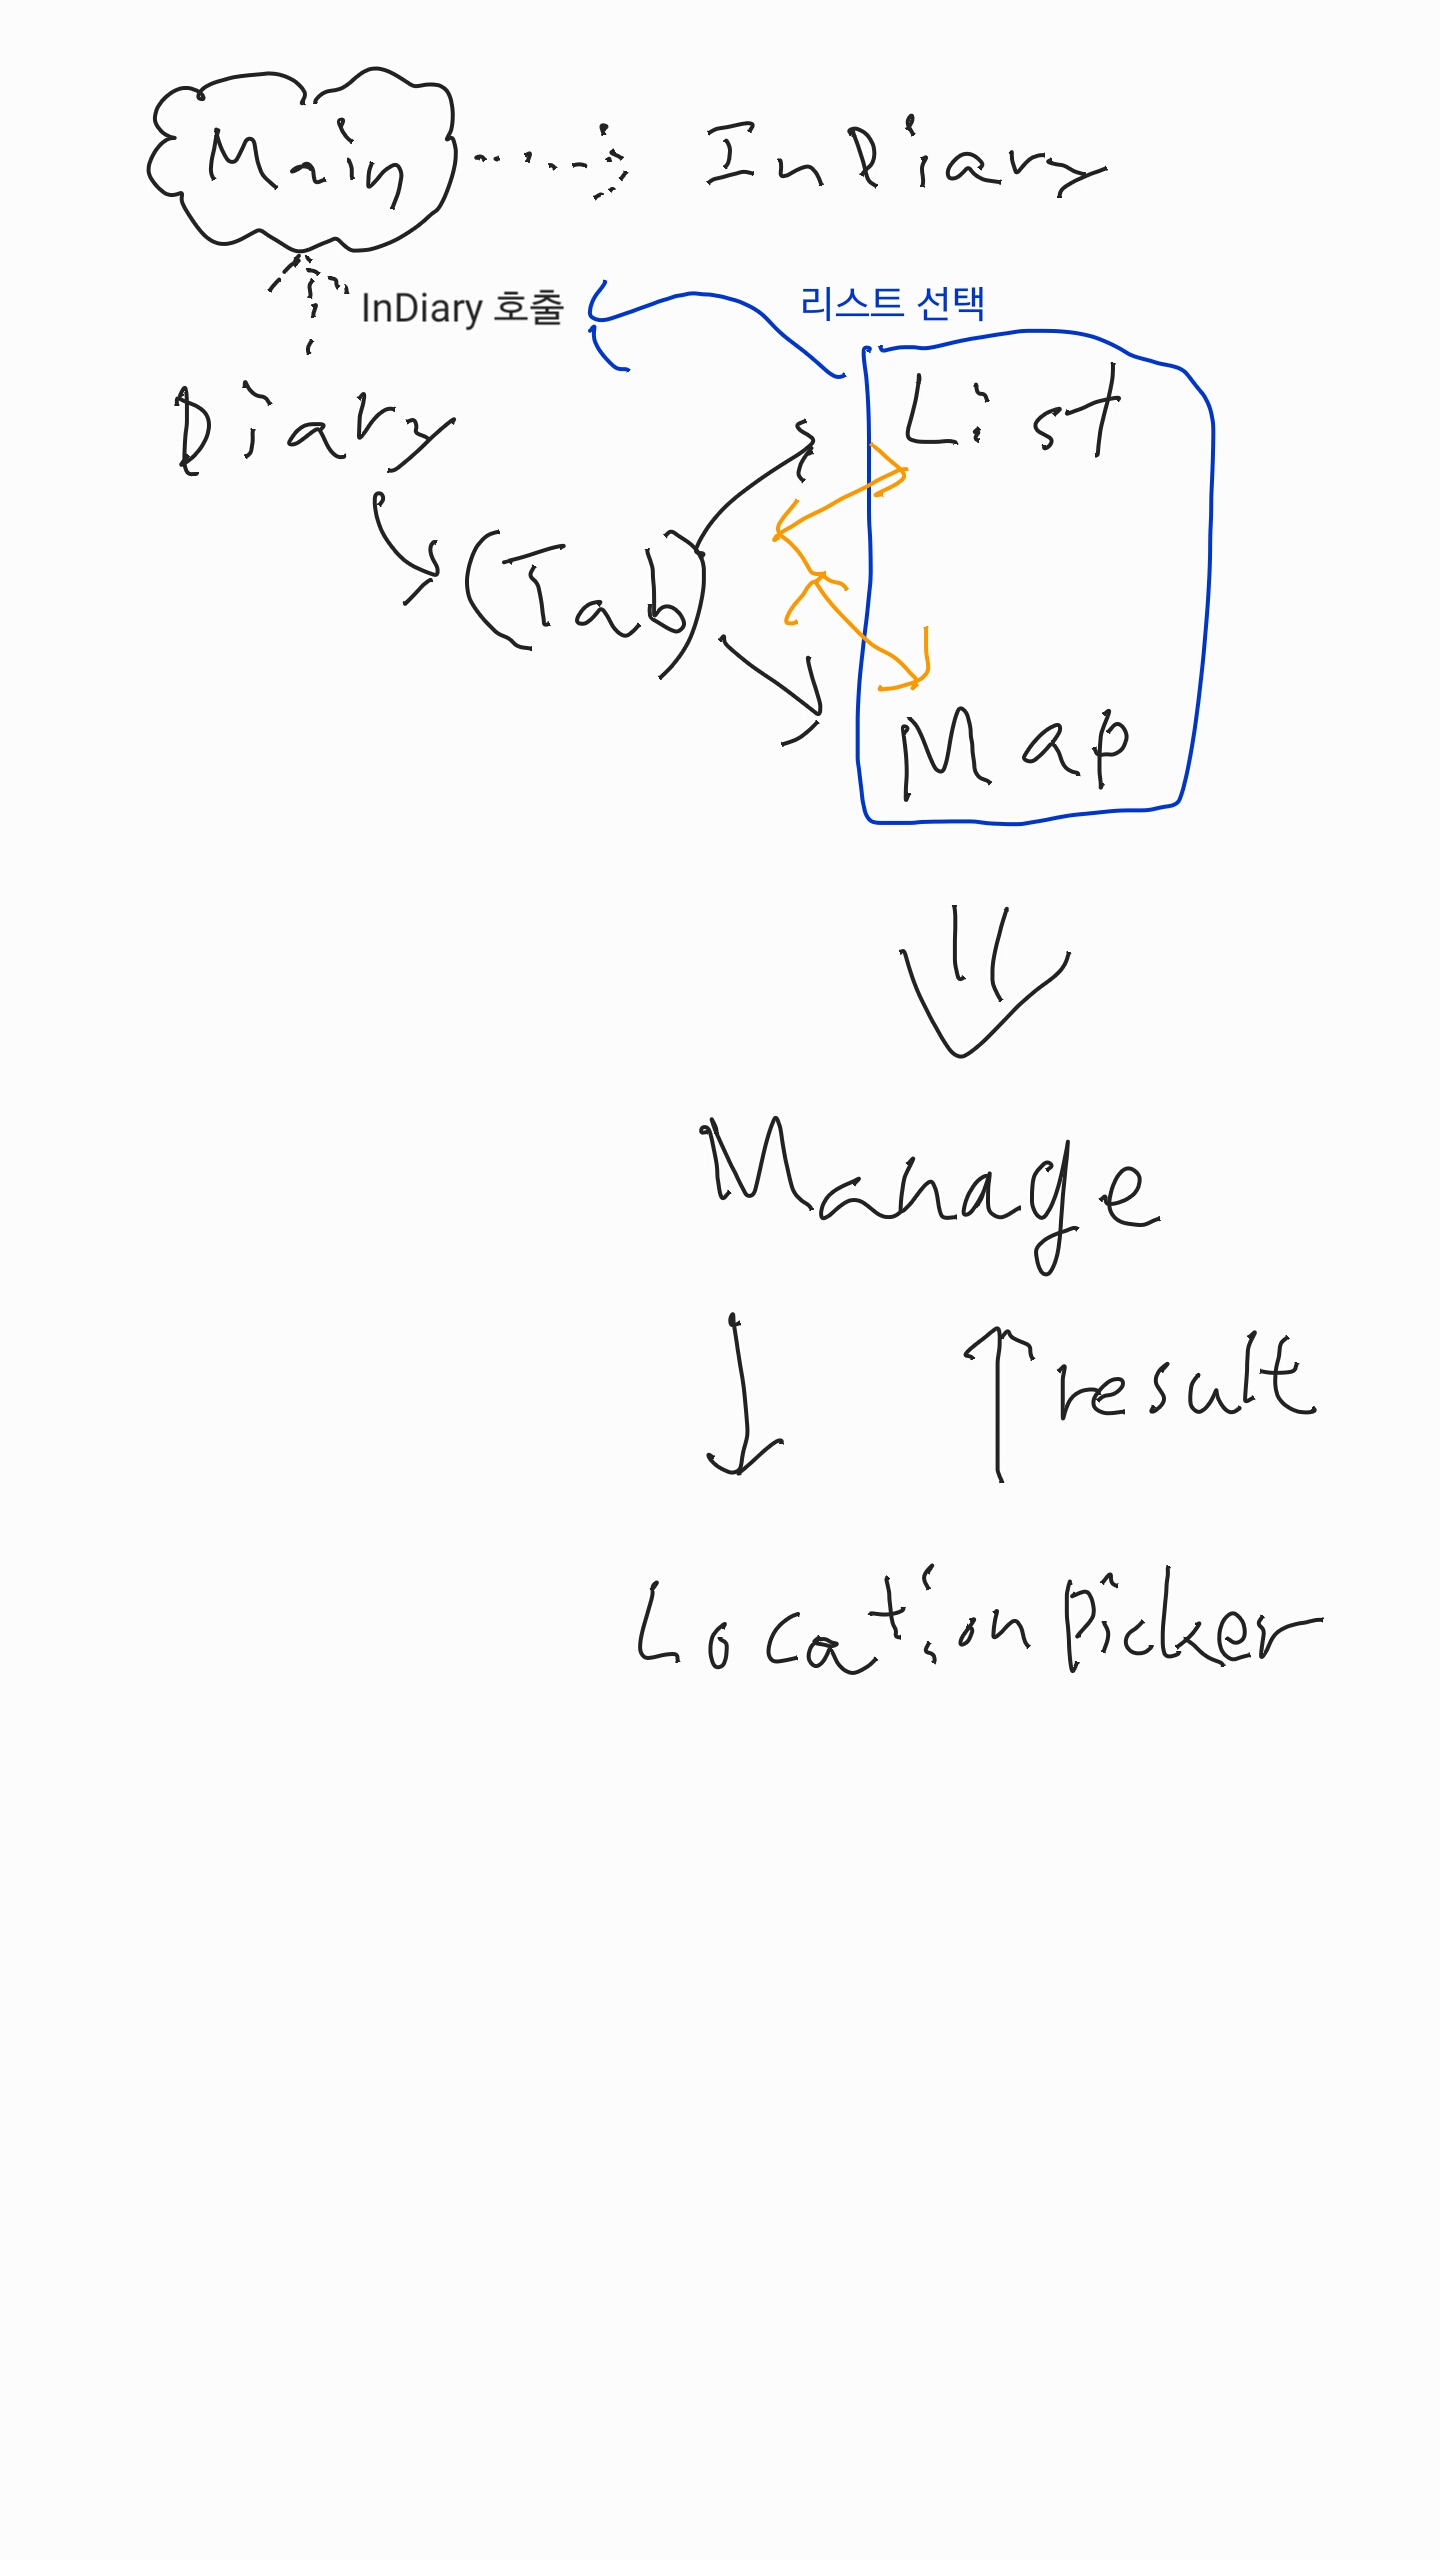 Main
InDiary
InDiary 호출
리스트 선택
Diary
List
(Tab)
Map
Manage
result
LocationPicker